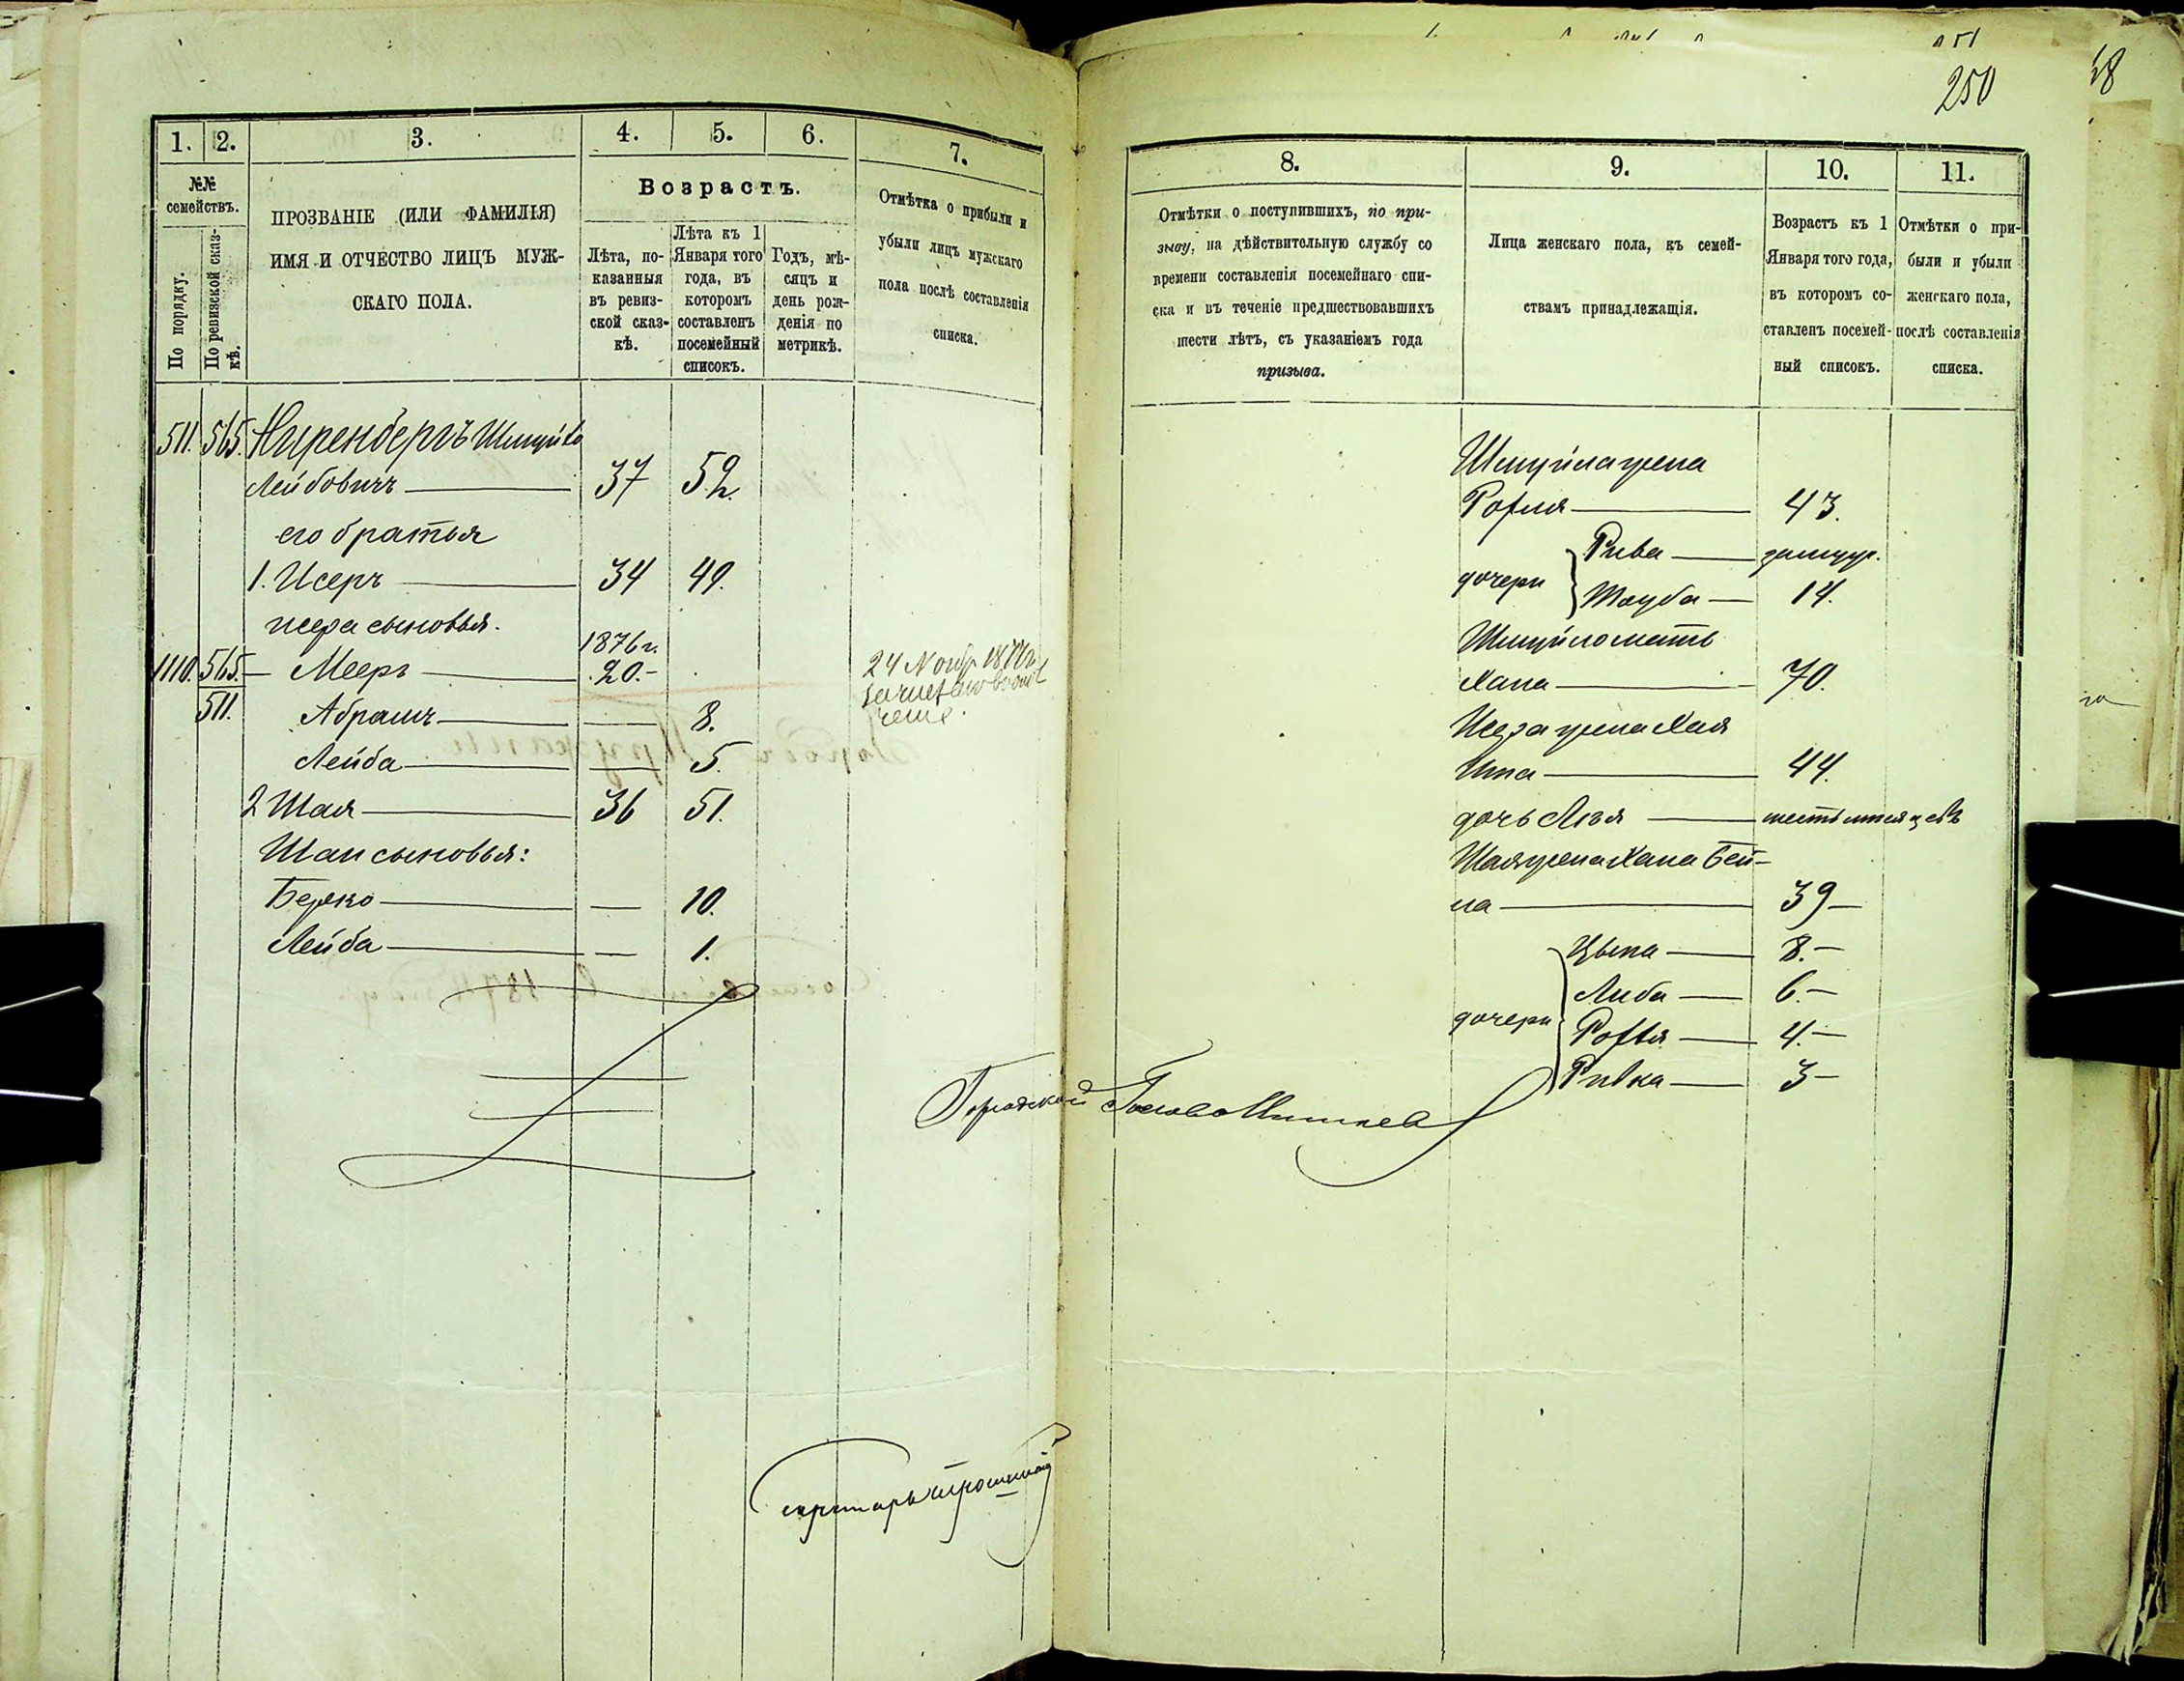 250
1. 2. 3. 4. 5. 6. 7.
№№ семействъ.
По порядку.
По ревизской сказкѣ.
ПРОЗВАНІЕ (ИЛИ ФАМИЛІЯ)
ИМЯ И ОТЧЕСТВО ЛИЦЪ МУЖ-
СКАГО ПОЛА.
Возрастъ.
Лѣта, по-
казанныя
въ ревиз-
ской сказ-
кѣ.
Лѣта къ 1
Января того
года, въ
которомъ
составленъ
посемейный
списокъ.
Годъ, мѣ-
сяцъ и
день рож-
денія по
метрикѣ.
Отмѣтка о прибыли и
убыли лицъ мужскаго
пола послѣ составленія
списка.
511. 565. Ниренбергъ Шмуйло
Лейбовичъ 37 52.
его братья
1. Исеръ 34 49.
исера сыновья.
1876 г.
1110. 565. Мееръ 20.- 24 Ноябр
511. Абрамъ — 8.
Лейба — 5.
2 Шая 36 51.
Шаи сыновья:
Берко — 10.
Лейба — 1.
Городской Голова
8. 9. 10. 11.
Отмѣтки о поступившихъ, по при-
зыву, на дѣйствительную службу со
времени составленія посемейнаго спи-
ска и въ теченіе предшествовавшихъ
шести лѣтъ, съ указаніемъ года
призыва.
Лица женскаго пола, къ семей-
ствамъ принадлежащія.
Возрастъ къ 1
Января того года,
въ которомъ со-
ставленъ посемей-
ный списокъ.
Отмѣтки о при-
были и убыли
женскаго пола,
послѣ составленія
списка.
Шмуйла жена
Рохля 43.
дочери Рива замуж.
Тауба 14.
Шмуйло мать
Хана 70.
Исера жена Хая
Ита 44.
дочь Лея шесть мѣсяцевъ
Шая жена Хана Бей-
ла 39
дочери Цыпа 8.
Либа 6.
Рохля 4.
Ривка 3
секретарь